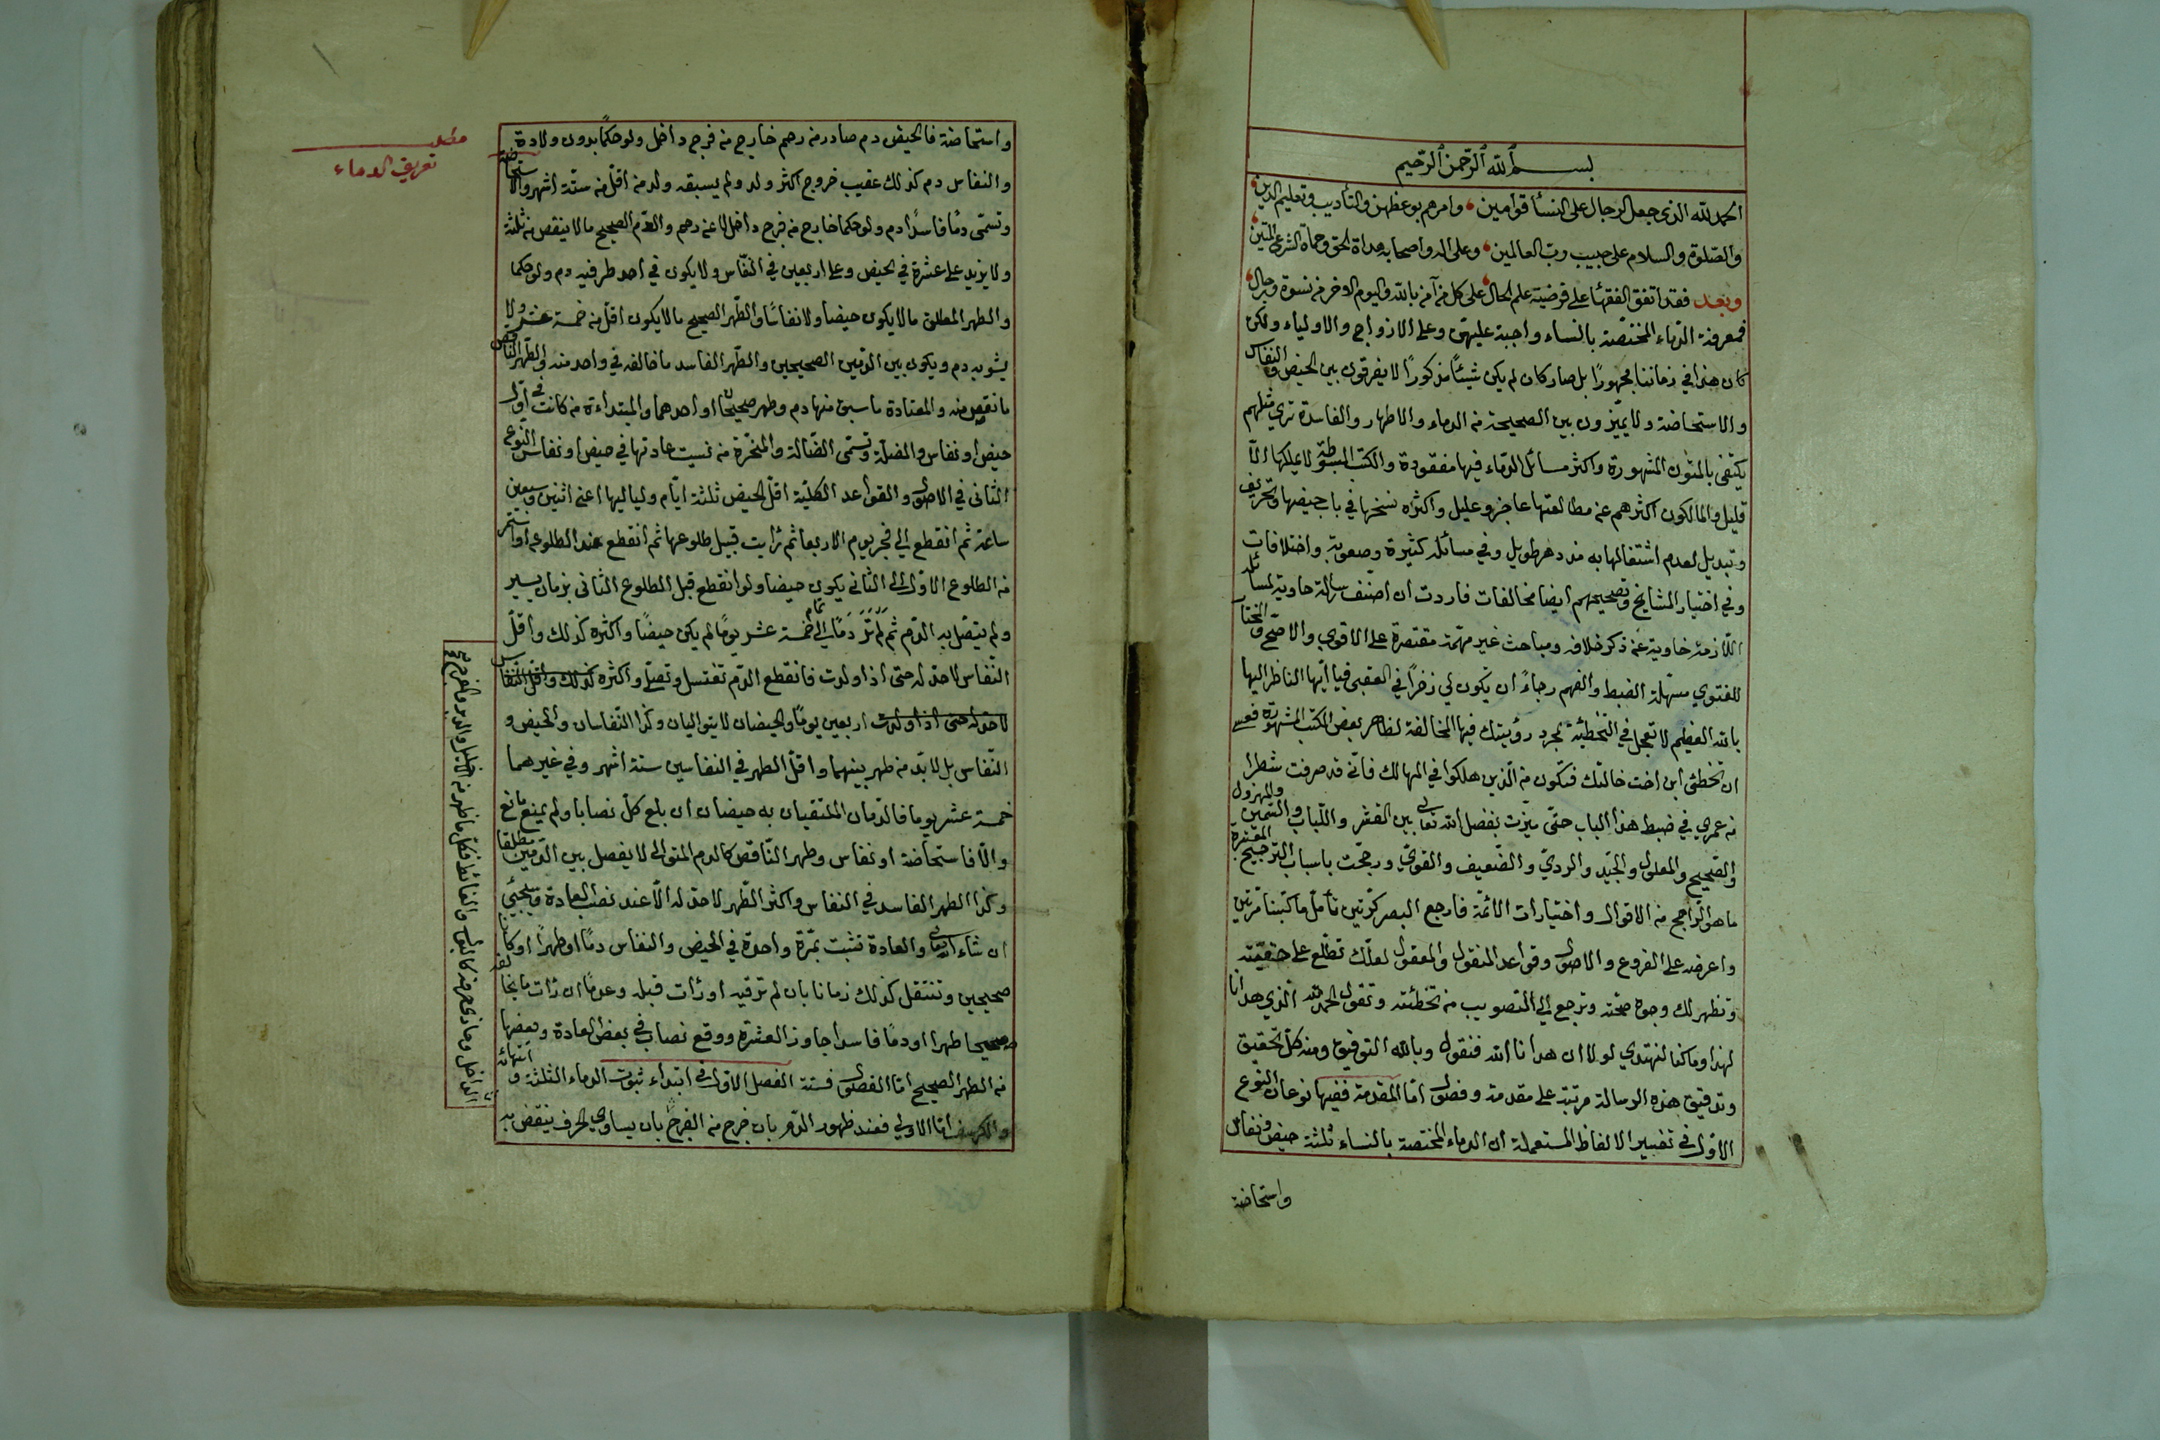 بسم الله الرحمن الرحيم
الحمد لله الذى جعل الرجال على النسأ قوامين وامرهم بوعظهن والتأديب وتعليم الدين
والصّلوة والسلام على حبيب ربّ العالمين وعلى اله واصحابه هداة الحق وحماة الشرع المتين
وبعد فقد اتفق الفقهأ على فرضية علم الحال على كل من آمن بالله واليوم الاخر من نسوة ورجال
فمعرفة الدّماء المختصّة بالنساء واجبة عليهنّ وعلى الازواج والاولياء ولكن
كان هذا في زماننا مهجورًا بل صار كان لم يكن شيئًا مذكورًا لا يفرقون بين الحيض والنفاس
والاستحاضة ولا يميّزون بين الصحيحة من الدماء والاطهار والفاسدة ترى مثلهم
يكتفى بالمتون المشهورة واكثر مسائل الدّماء فيها مفقودة والكتب المبسوطة لا يملكها الّا
قليل والمالكون اكثرهم عن مطالعتها عاجز وعليل واكثر نسخها في باب حيضها تحريف
وتبديل لعدم اشتغالها به منذ دهر طويل وفي مسائله كثيرة وصعوبة واختلافات
وفي اختيار المشايخ وتصحيحهم ايضا مخالفات فاردت ان اصنف رسالة حاوية لمسائله
اللّازمة خاوية عن ذكر خلاف ومباحث غير مهمّة مقتصرة على الاقوي والاصحّ والمختار
للفتوي مسهّلة الضبط والفهم رجاءً ان يكون لي ذخرًا في العقبى فيا ايّها الناظر اليها
بالله العظيم لا تعجل في التخطيئة بمجرد رؤيتك فيها المخالفة لظاهر بعض الكتب المشهورة فعسى
ان تخطئ ابن اخت خالتك فتكون من الّذين هلكوا في المهالك فانّي قد صرفت شطرا
من عمري في ضبط هذا الباب حتّى ميّزت بفضل الله تعالى بين القشر واللّباب والسّمين والمهزول
والصّحيح والمعلول والجيّد والرديّ والضّعيف والقويّ ورجّحت باسباب الترجيح المعتبرة
ما هو الرّاجح من الاقوال واختيارات الائمّة فارجع البصر كرّتين تأمّل ما كتبنا مرّتين
واعرضه على الفروع والاصول وقواعد المنقول والمعقول لعلّك تطّلع على حقّيّته
وتظهر لك وجوه صحّته وترجع الى التصويب من تخطئته وتقول الحمد لله الّذي هدانا
لهذا وما كنا لنهتدي لولا ان هدانا الله فنقول وبالله التوفيق ومنه كلّ تحقيق
وتدقيق هذه الرسالة مرتبة على مقدمة وفصول امّا المقدمة ففيها نوعان النّوع
الاوّل في تفسير الالفاظ المستعملة ان الدماء المختصة بالنساء ثلثة حيض ونفاس
واستحاضة
مطلب
تعريف الدماء
واستحاضة فالحيض دم صادر من رحم خارج من فرج داخل ولو حكمًا بدون ولادة
والنفاس دم كذلك عقيب خروج اكثر ولد ولم يسبقه ولد من اقلّ من ستّة اشهر والاستحاضة
وتسمّى دمًا فاسدًا دم ولو حكما خارج من فرج داخل لا عن رحم والدّم الصحيح ما لا ينقص من ثلثة
ولا يزيد على عشرة في الحيض وعلى اربعين في النّفاس ولا يكون في احد طرفيه دم ولو حكما
والطهر المطلق ما لا يكون حيضا ولا نفاسًا والطّهر الصحيح ما لا يكون اقلّ من خمسة عشر ولا
يشوبه دم ويكون بين الدّمين الصحيحين والطّهر الفاسد ما خالفه في واحد منه والطّهر الناقص
ما نقص منه والمعتادة ما سبق منها دم وطهر صحيحان او احدهما والمبتداءة من كانت في اوّل
حيض او نفاس والمضلّة وتسمّى الضّالة والمتحيّرة من نسيت عادتها في حيض او نفاس النّوع
الثّانى في الاصول والقواعد الكليّة اقلّ الحيض ثلثة ايّام ولياليها اعنى اثنين وسبعين
ساعة ثم انقطع الى فجر يوم الاربعا ثم رأيت قبيل طلوعها ثم انقطع عند الطلوع او استمر
من الطلوع الاول الى الثانى يكون حيضا ولو انقطع قبل الطلوع الثانى بزمان يسير
ولم يتّصل به الدّم ثم لم تر دمًا الى تمام خمسة عشر يومًا لم يكن حيضًا واكثره كذلك واقلّ
النّفاس لا حدّ له حتى اذا ولدت فانقطع الدّم تغتسل وتصلّى واكثره كذلك واقلّ النّفاس
لا حدّ له حتى اذا ولدت اربعين يومًا والحيضان لا يتواليان وكذا النّفاسان والحيض و
النّفاس بل لا بدّ من طهر بينهما واقلّ الطهر في النفاسين ستة اشهر وفي غيرهما
خمسة عشر يوما فالدّمان المتقيان به حيضان ان بلغ كلّ نصابا ولم يمنع مانع
والّا فاستحاضة او نفاس وطهر النّاقص كالدم المتوالى لا يفصل بين الدّمين مطلقا
وكذا الطهر الفاسد في النفاس واكثر الطّهر لا حدّ له الّا عند نصب العادة وسيجئي
ان شاء الله تعالى والعادة تثبت بمرّة واحدة في الحيض والنفاس دمًا او طهرًا او كانا
صحيحين وتنتقل كذلك زمانا بان لم تر فيه او رأت قبله وعدمًا ان رأت ما يخالفه
صحيحا طهرا او دمًا فاسدا جاوز العشرة ووقع نصاب في بعض العادة وبعضها
من الطهر الصحيح امّا الفصول فستة الفصل الاوّل في ابتداء ثبوت الدماء الثلثة وانتهائه
والكرسف امّا الاول فعند ظهور الدّم بان خرج من الفرج بان يساوي الحرف ينقض به